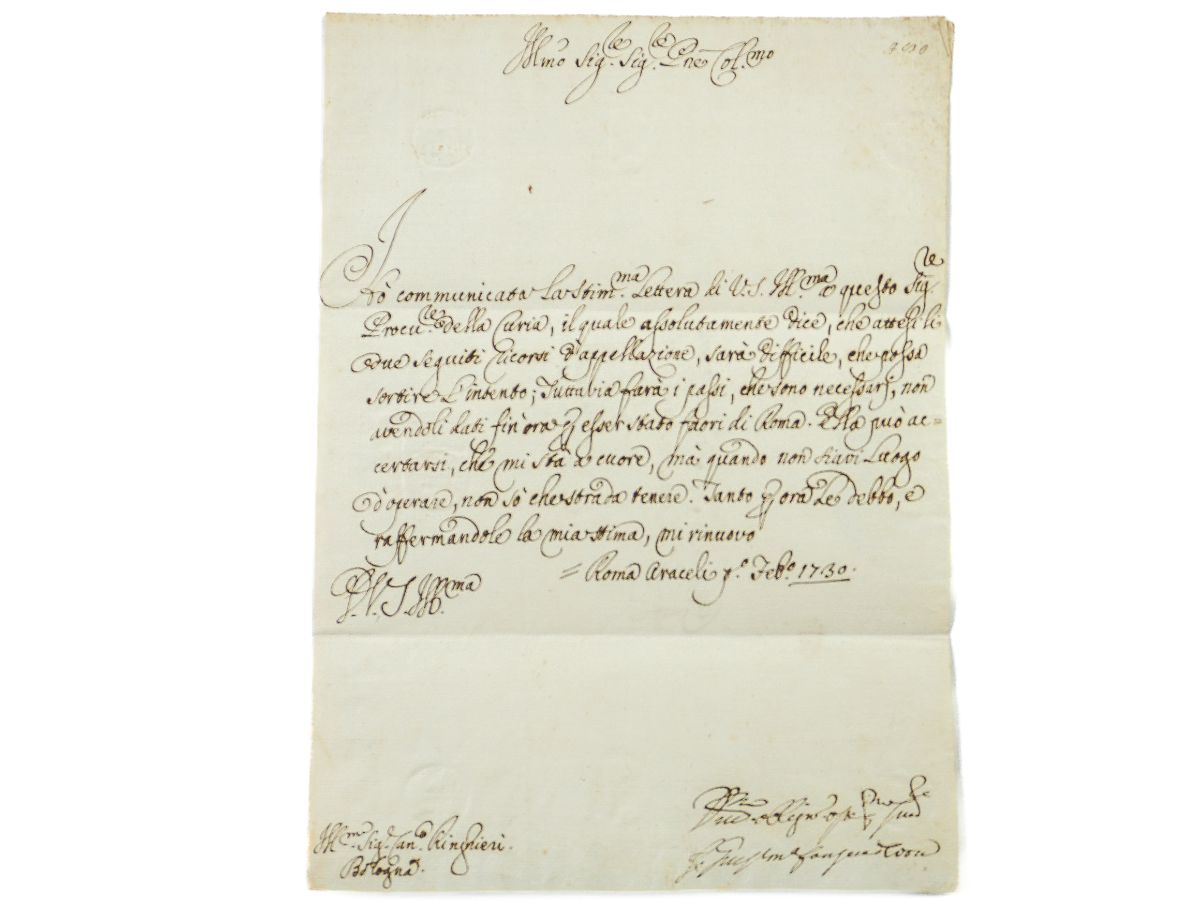 Ill.mo Sig.re Sig.re P.ne Col.mo
Hò communicata la stim.ma Lettera di V.S. Ill.ma a questo Sig.re
Procu.re della Curia, il quale assolutamente dice, che attesi li
due seguiti ricorsi d'appellazione, sarà difficile, che possa
sortire l'intento; Tuttavia farà i passi, che sono necessarj, non
avendoli dati fin'ora p esser stato fuori di Roma. Ella può ac=
certarsi, che mi stà a cuore, mà quando non siavi Luogo
d'operare, non sò che strada tenere. Tanto p ora Le debbo, e
raffermandole la mia stima, mi rinuovo
= Roma Araceli p.o Feb.o 1730.
D. V. S. Ill.ma
Ill.mo Sig.r Can.co Ringhieri.
Bologna.